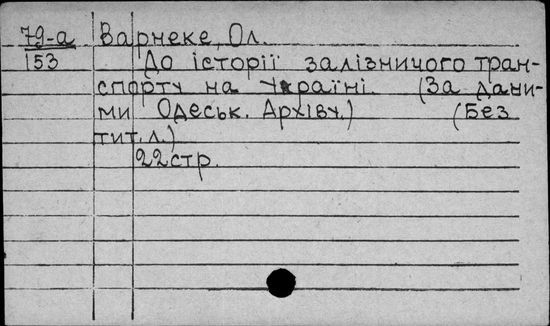 79-а Варнеке, Ол.
153 До історії залізничого тран-
спорту на Україні. (За дани-
ми Одеськ. Архіву.) (Без
тит. л.)
22 стр.